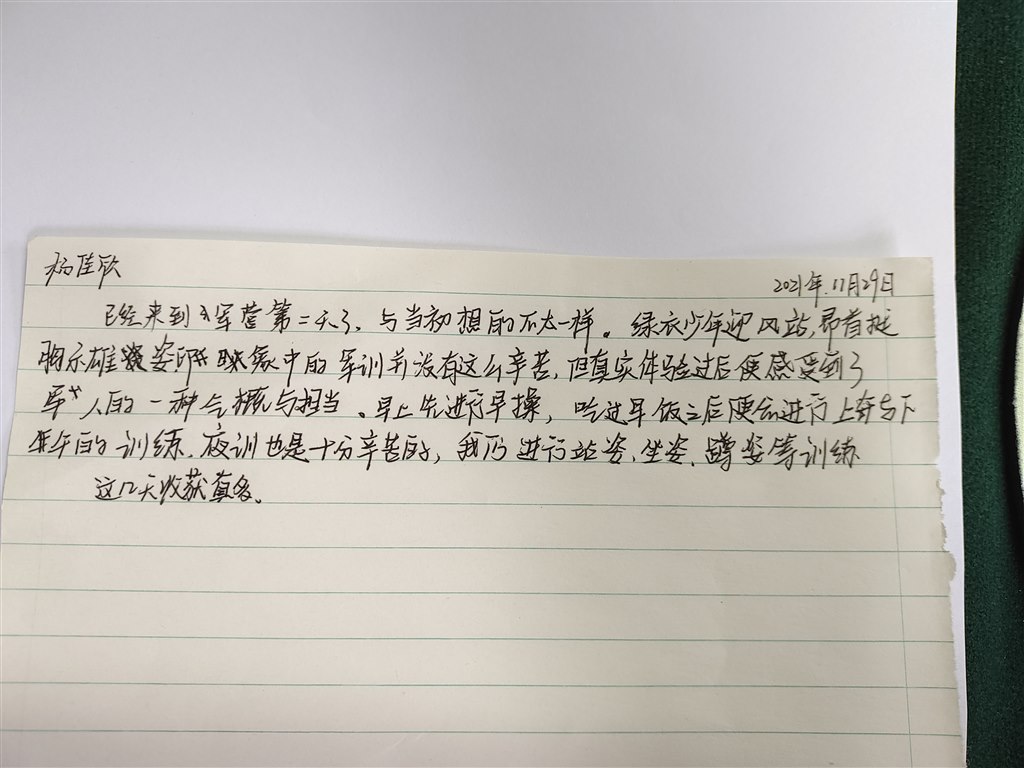 杨佳欣
2021年11月29日
已经来到了军营第二天了，与当初想的不太一样。绿衣少年迎风站，昂首挺
胸示雄姿 印象中的军训并没有这么辛苦，但真实体验过后便感受到了
军人的一种气概与担当。早上先进行早操，吃过早饭之后便会进行上午与下
午的训练，夜训也是十分辛苦的，我们进行站姿，坐姿、蹲姿等训练
这几天收获真多。